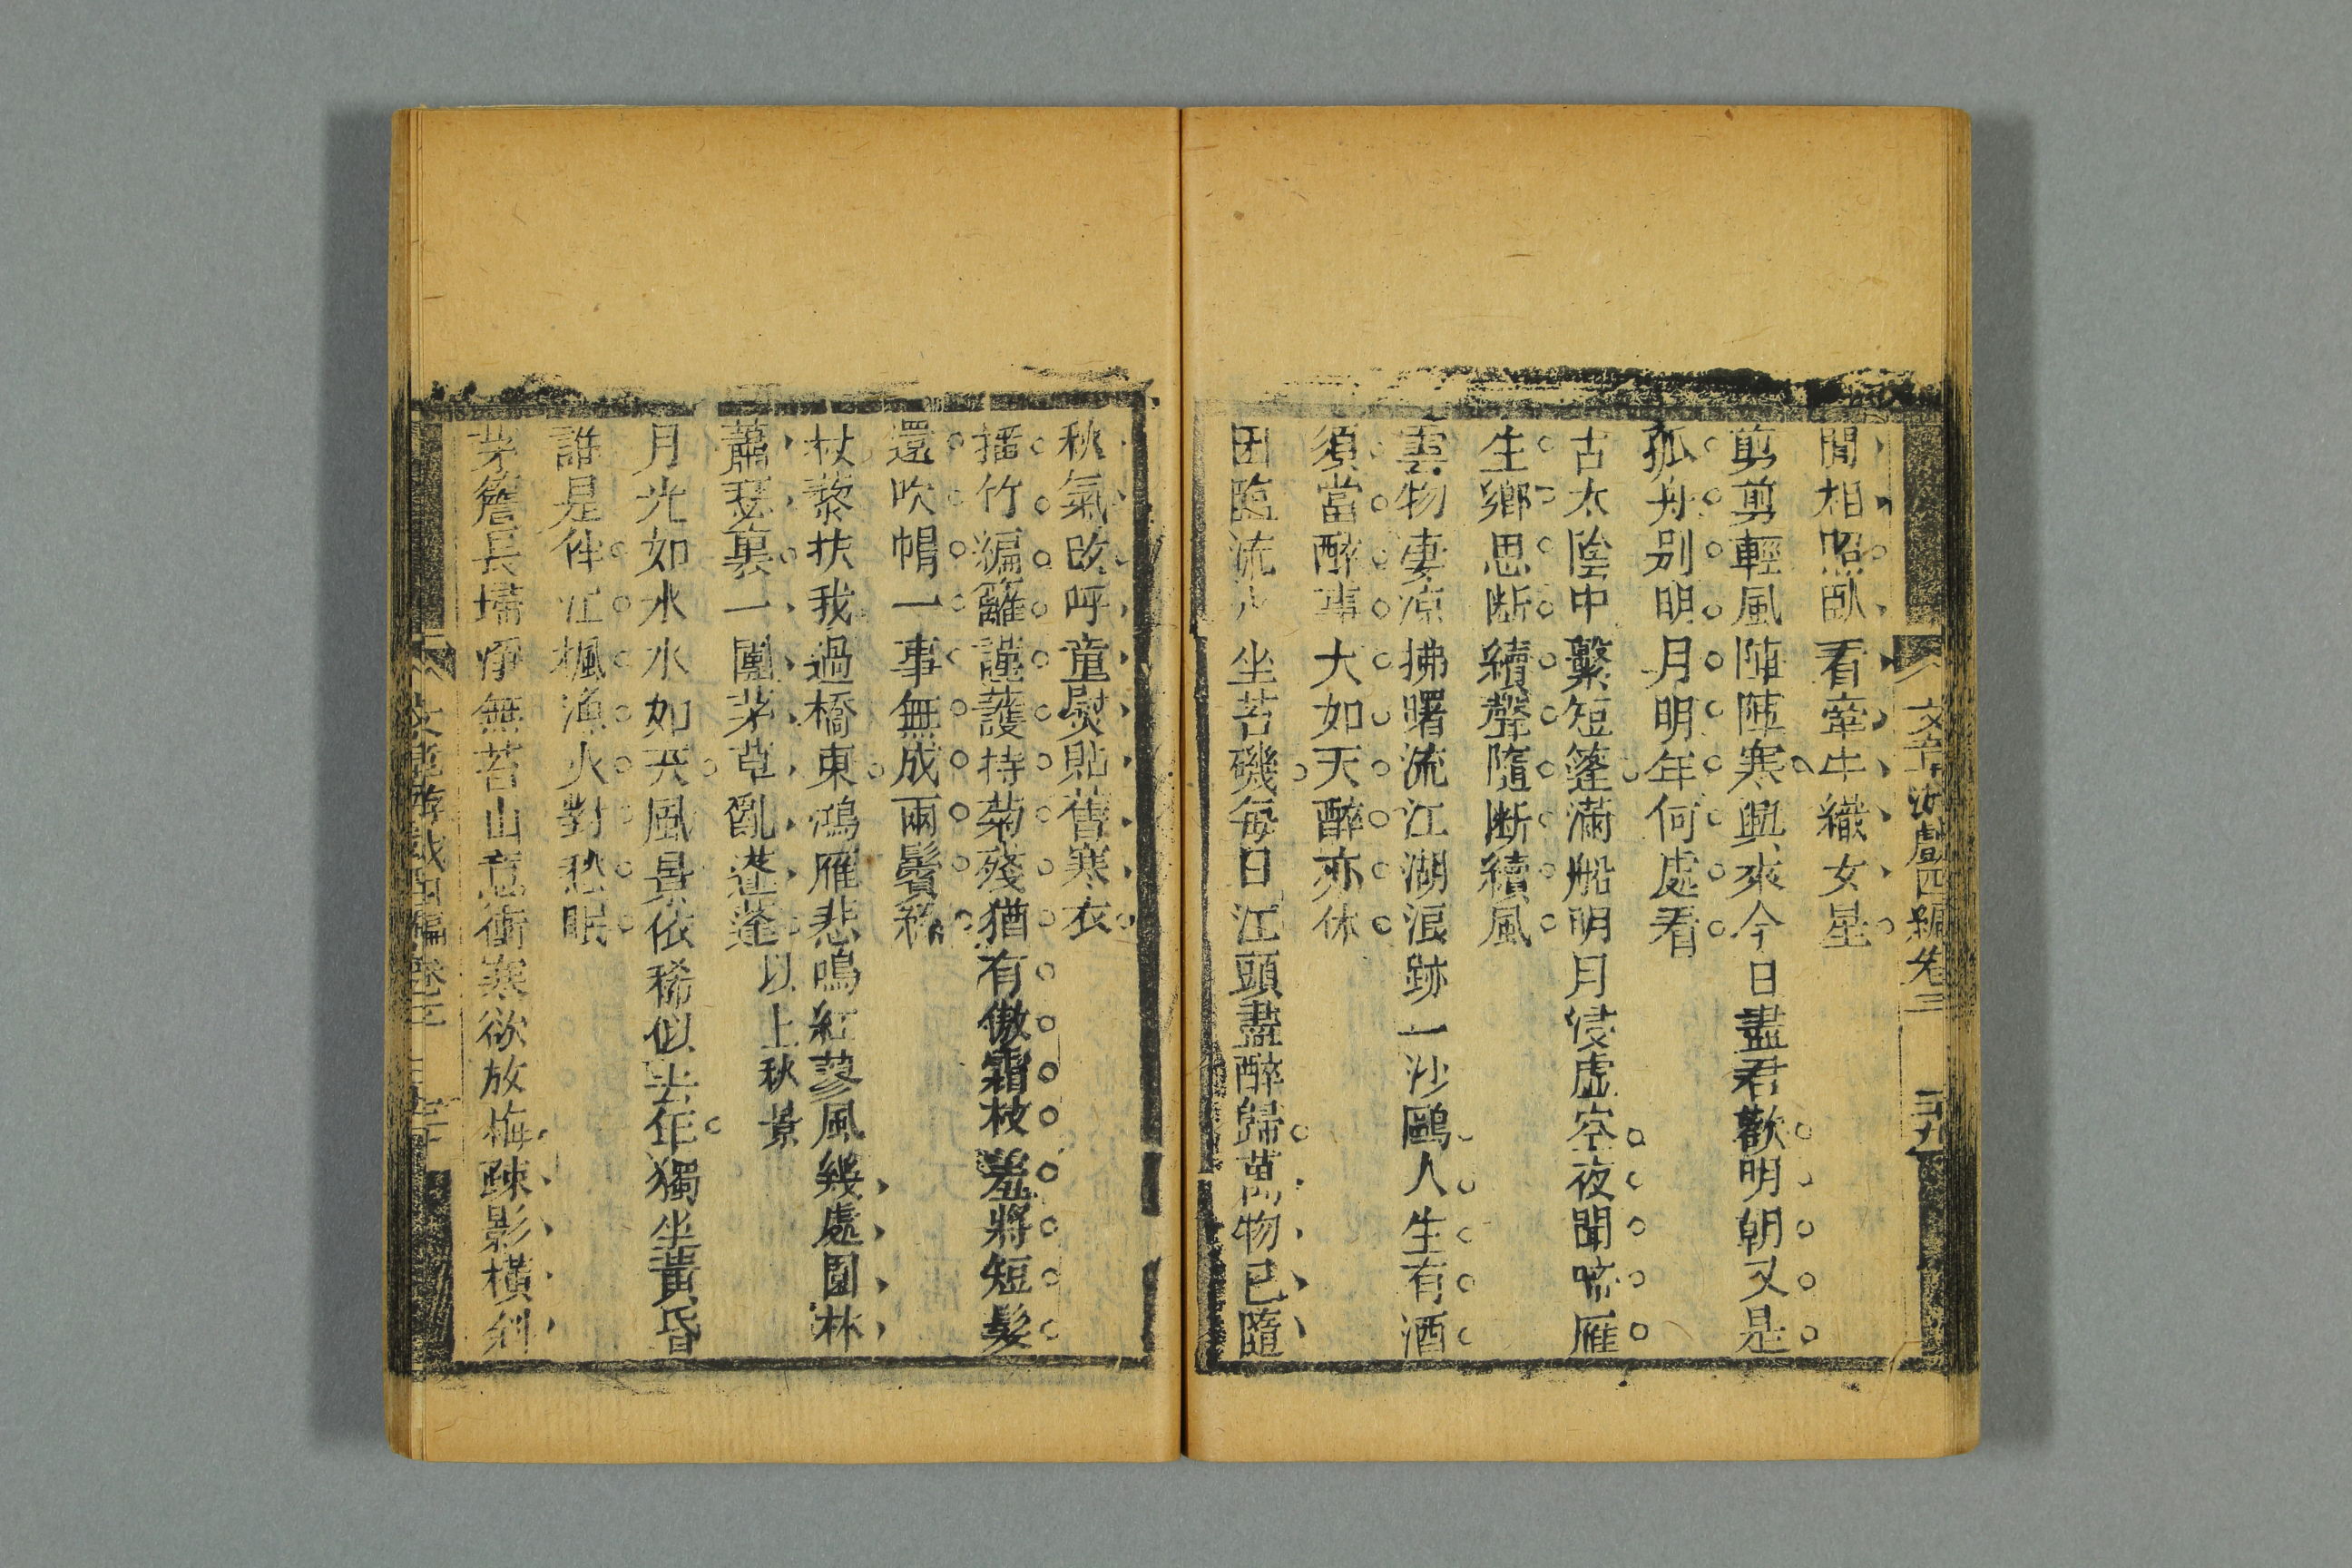 文章游戲四編卷三 三十九
閒相照臥看牽牛織女星
剪剪輕風陣陣寒興來今日盡君歡明朝又是
孤舟別明月明年何處看
古太陰中繫短篷滿船明月浸虛空夜聞啼雁
生鄉思斷續聲隨斷續風
雲物凄凉拂曙流江湖浪跡一沙鷗人生有酒
須當醉事大如天醉亦休
因臨流水坐苔磯每日江頭盡醉歸萬物已隨
秋氣改呼童熨貼舊寒衣
插竹編籬謹護持菊殘猶有傲霜枝羞將短髮
還吹帽一事無成兩鬢絲
杖藜扶我過橋東鴻雁悲鳴紅蓼風幾處園林
蕭瑟裏一團茅草亂蓬蓬以上秋景
月光如水水如天風景依稀似去年獨坐黃昏
誰是伴江楓漁火對愁眠
茅簷長埽淨無苔山意衝寒欲放梅疎影橫斜
文章游戲四編卷三